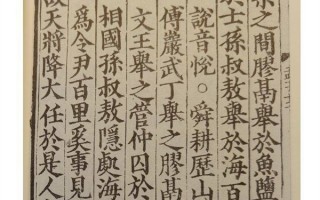 之間膠鬲舉於魚鹽
於士孫叔敖舉於海百
說音悅○舜耕歷山
傅巖武丁舉之膠鬲
文王舉之管仲囚於
相國孫叔敖隱處海
爲令尹百里奚事見
故天將降大任於是人